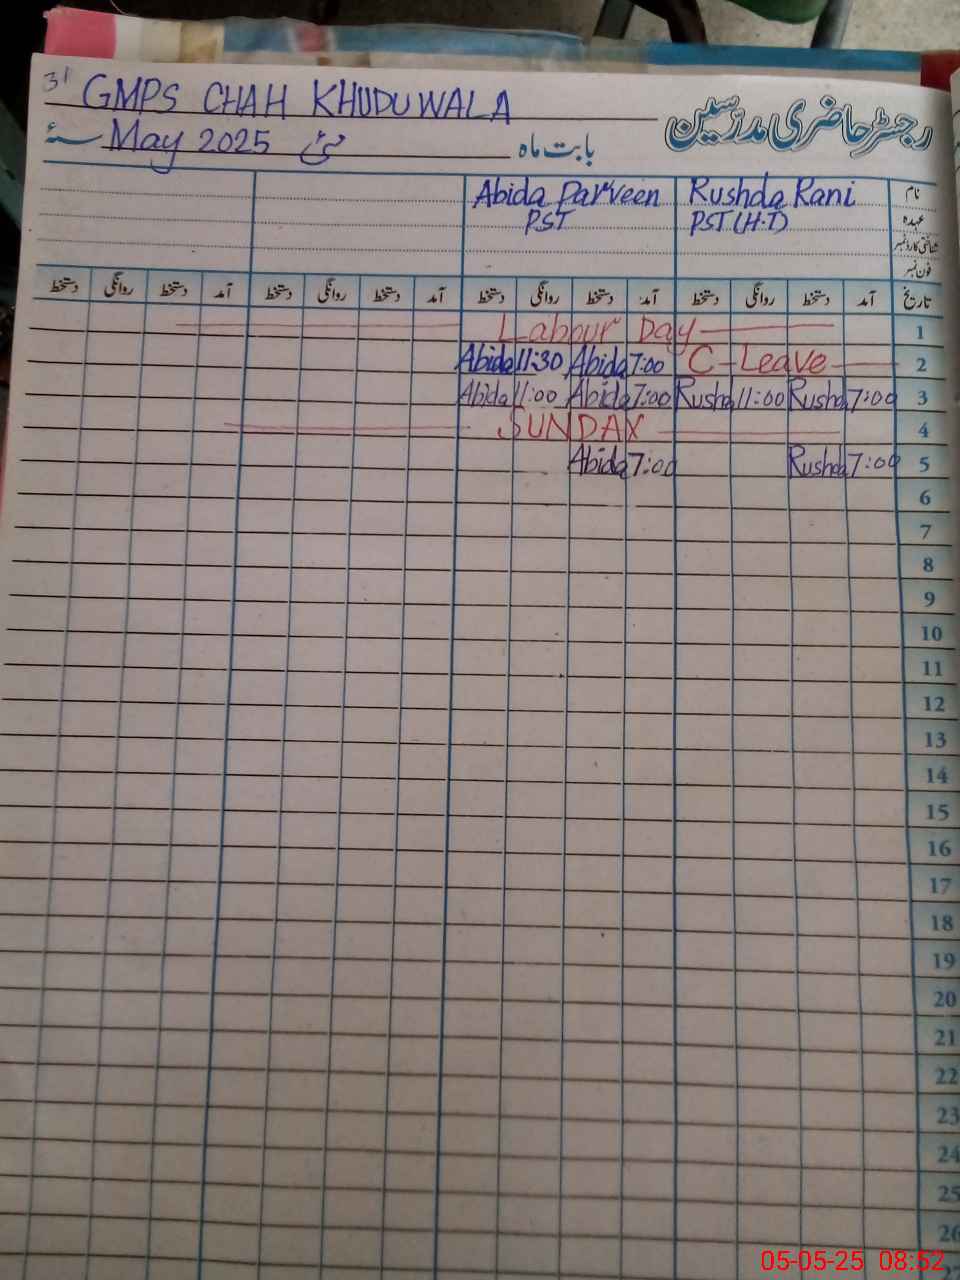 31 GMPS CHAH KHUDUWALA
رجسٹر حاضری مدرسین
بابت ماہ مئی May 2025 سنہ
نام Rushda Rani Abida Parveen
عہدہ PST (H.T) PST
شناختی کارڈ نمبر
فون نمبر
تاریخ آمد دستخط روانگی دستخط آمد دستخط روانگی دستخط آمد دستخط روانگی دستخط آمد دستخط روانگی دستخط
1 Labour Day
2 C-Leave 7:00 Abida 11:30 Abida
3 7:00 Rushda 11:00 Rushda 7:00 Abida 11:00 Abida
4 SUNDAY
5 7:00 Rushda 7:00 Abida
6
7
8
9
10
11
12
13
14
15
16
17
18
19
20
21
22
23
24
25
26
27
05-05-25 08:52